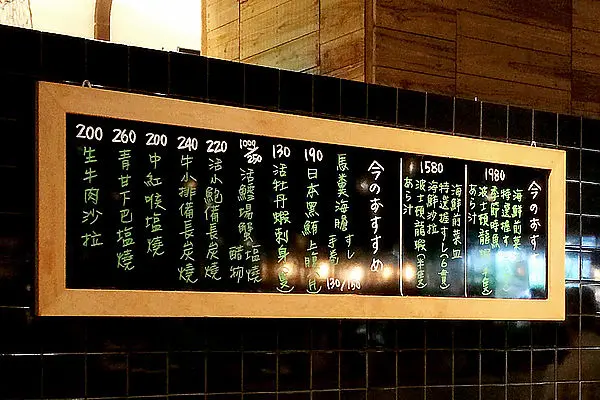 今のおすすめ
1980
海鮮前菜
特選握すし
季節時魚
波士頓龍蝦(半隻)
あら汁
1580
海鮮前菜皿
特選握すし(6貫)
海鮮沙拉
波士頓龍蝦(半隻)
あら汁
今のおすすめ
馬糞海膽 すし 手巻 130/150
190
日本黑鮪上腹(片)
130
活牡丹蝦刺身(隻)
活鱈場蟹 塩燒 醋物
220
活小鮑備長炭燒
240
牛小排備長炭燒
200
中紅喉塩燒
260
青甘下巴塩燒
200
生牛肉沙拉